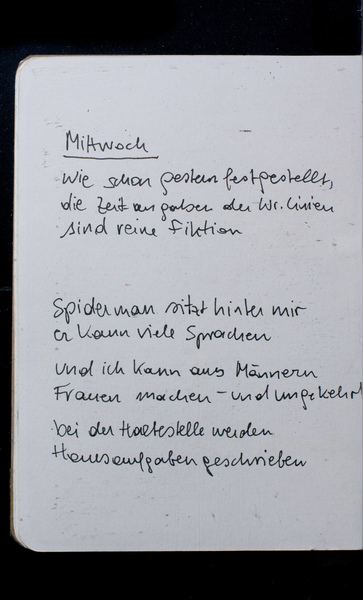 Mittwoch
Wie schon gestern festgestellt,
die Zeitangaben der Wr. Linien
sind reine Fiktion
Spiderman sitzt hinter mir
er kann viele Sprachen
und ich kann aus Männern
Frauen machen – und umgekehrt
bei der Haltestelle werden
Hausaufgaben geschrieben